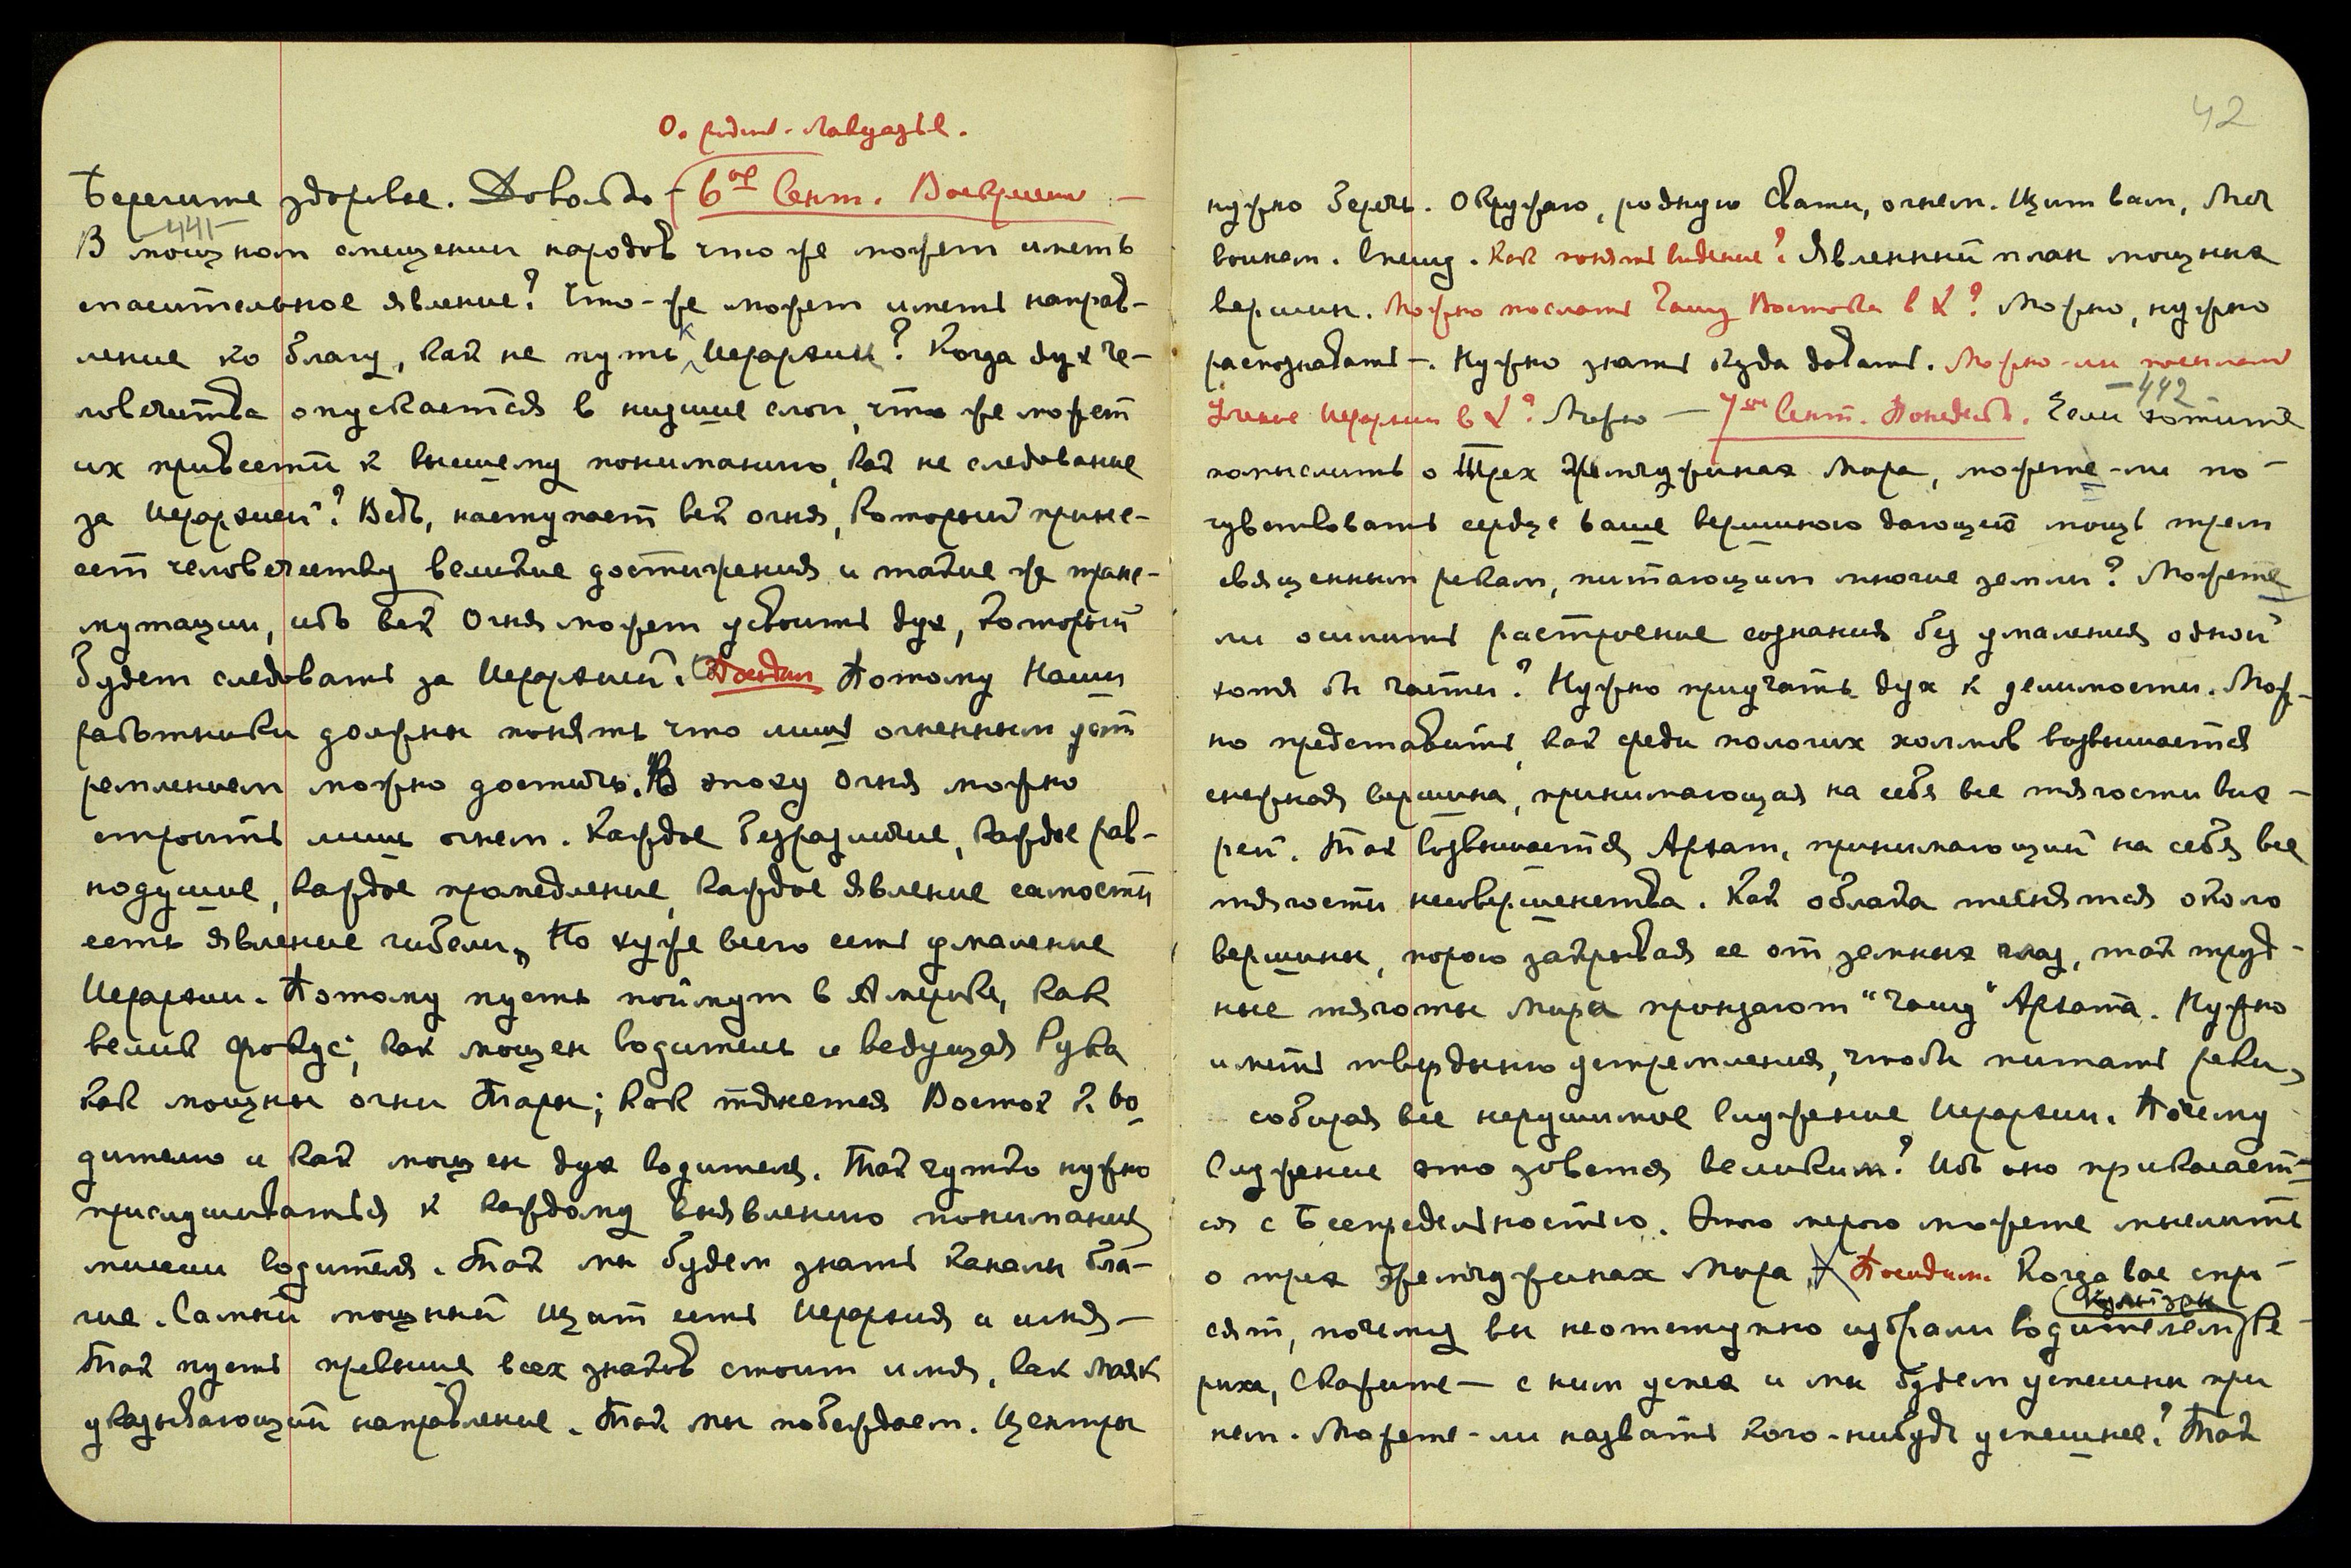 42
Берегите здоровье. Довольно — 6ое Сент. Воскресение —
441
В мощном смещении народов что же может иметь
спасительное явление? Что-же может иметь направ-
ление ко благу, как не путь к Иерархии? Когда дух че-
ловечества опускается в низшие слои, что же может
их привести к высшему пониманию, как не следование
за Иерархией? Ведь, наступает век огня, который прине-
сет человечеству великие достижения и такие же транс-
мутации, ибо век Огня может усвоить дух, который
будет следовать за Иерархией. Потому Наши
работники должны понять что лишь огненным уст
ремлением можно достичь. В эпоху Огня можно
строить лишь огнем. Каждое безразличие, каждое рав-
нодушие, каждое промедление, каждое явление самости
есть явление гибели. Но хуже всего есть умаление
Иерархии. Потому пусть поймут в Америке, как
велик фокус; как мощен водитель и ведущая Рука
как мощны огни Тары; как тянется Восток к во
дителю и как мощен дух водителя. Так чутко нужно
прислушиваться к каждому выявлению понимания
миссии водителя. Так мы будем знать каналы бла-
гие. Самый мощный Щит есть Иерархия и имя —
Так пусть превыше всех знаков стоит имя, как маяк
указывающий направление. Так мы побеждаем. Центры
нужно беречь. Окружаю, родную Свати, огнем. Щит вам, Меч
воинам. Спешу. Как понять видение? Явленный план мощных
вершин. Можно послать Чашу Востока в Х? Можно, нужно
распознавать —. Нужно знать куда давать. Можно-ли
Учение Иерархии в Х? Можно — 7ое Сент. Понедельн. Если хотите
442
помыслить о Трех Жемчужинах Мира, можете-ли по-
чувствовать сердце ваше вершиною дающею мощь трем
священным рекам, питающим многие земли? Можете
ли осилить растроение сознания без умаления одной
хотя бы части? Нужно приучать дух к делимости. Мож-
но представить, как среди пологих холмов возвышается
снежная вершина, принимающая на себя все тягости вих-
рей. Так возвышается Архат, принимающий на себя все
тягости несовершенства. Как облака теснятся около
вершины, порою закрывая ее от земных глаз, так труд-
ные тяготы Мира пронзают "чашу" Архата. Нужно
иметь твердыню устремления, чтобы питать реки,
собирая все нерушимое Служение Иерархии. Почему
Служение это зовется великим? Ибо оно прикасает-
ся с Беспредельностью. Этою мерою можете мыслить
о трех Жемчужинах Мира. Посидим. Когда вас спро-
сят, почему вы неотступно избрали водителем Ре
риха, Скажите — с ним успех и мы будем успешны при
нем. Можете-ли назвать кого-нибудь успешнее? Так